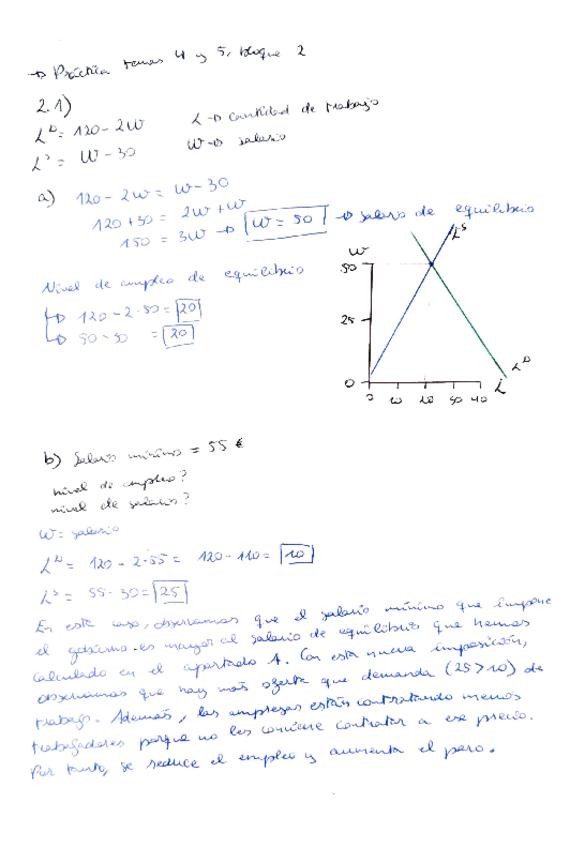 → Práctica temas 4 y 5, bloque 2
2.1)
L^D = 120 - 2W L → cantidad de trabajo
L^S = W - 30 W → salario
a) 120 - 2W = W - 30
120 + 30 = 2W + W
150 = 3W → W = 50 → salario de equilibrio
Nivel de empleo de equilibrio
→ 120 - 2·50 = 20
→ 50 - 30 = 20
W
L^S
50
25
0
0 10 20 30 40
L
L^D
b) Salario mínimo = 55 €
nivel de empleo?
nivel de salario?
W = salario
L^D = 120 - 2·55 = 120 - 110 = 10
L^S = 55 - 30 = 25
En este caso, observamos que el salario mínimo que impone
el gobierno es mayor al salario de equilibrio que hemos
calculado en el apartado A. Con esta nueva imposición,
observamos que hay más oferta que demanda (25 > 10) de
trabajo. Además, las empresas están contratando menos
trabajadores porque no les conviene contratar a ese precio.
Por tanto, se reduce el empleo y aumenta el paro.